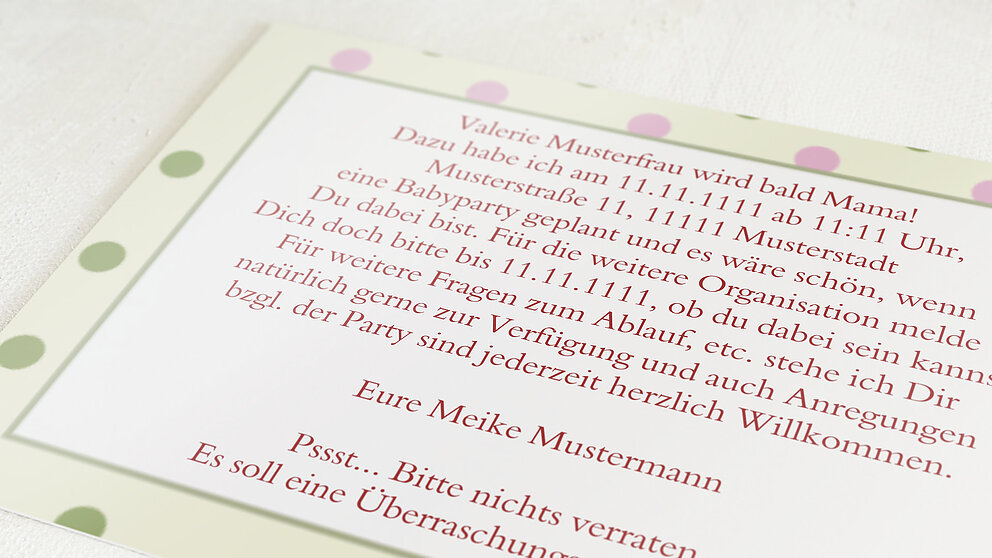 Valerie Musterfrau wird bald Mama!
Dazu habe ich am 11.11.1111 ab 11:11 Uhr,
Musterstraße 11, 11111 Musterstadt
eine Babyparty geplant und es wäre schön, wenn
Du dabei bist. Für die weitere Organisation melde
Dich doch bitte bis 11.11.1111, ob du dabei sein kanns
Für weitere Fragen zum Ablauf, etc. stehe ich Dir
natürlich gerne zur Verfügung und auch Anregungen
bzgl. der Party sind jederzeit herzlich Willkommen.
Eure Meike Mustermann
Pssst... Bitte nichts verraten
Es soll eine Überraschungs